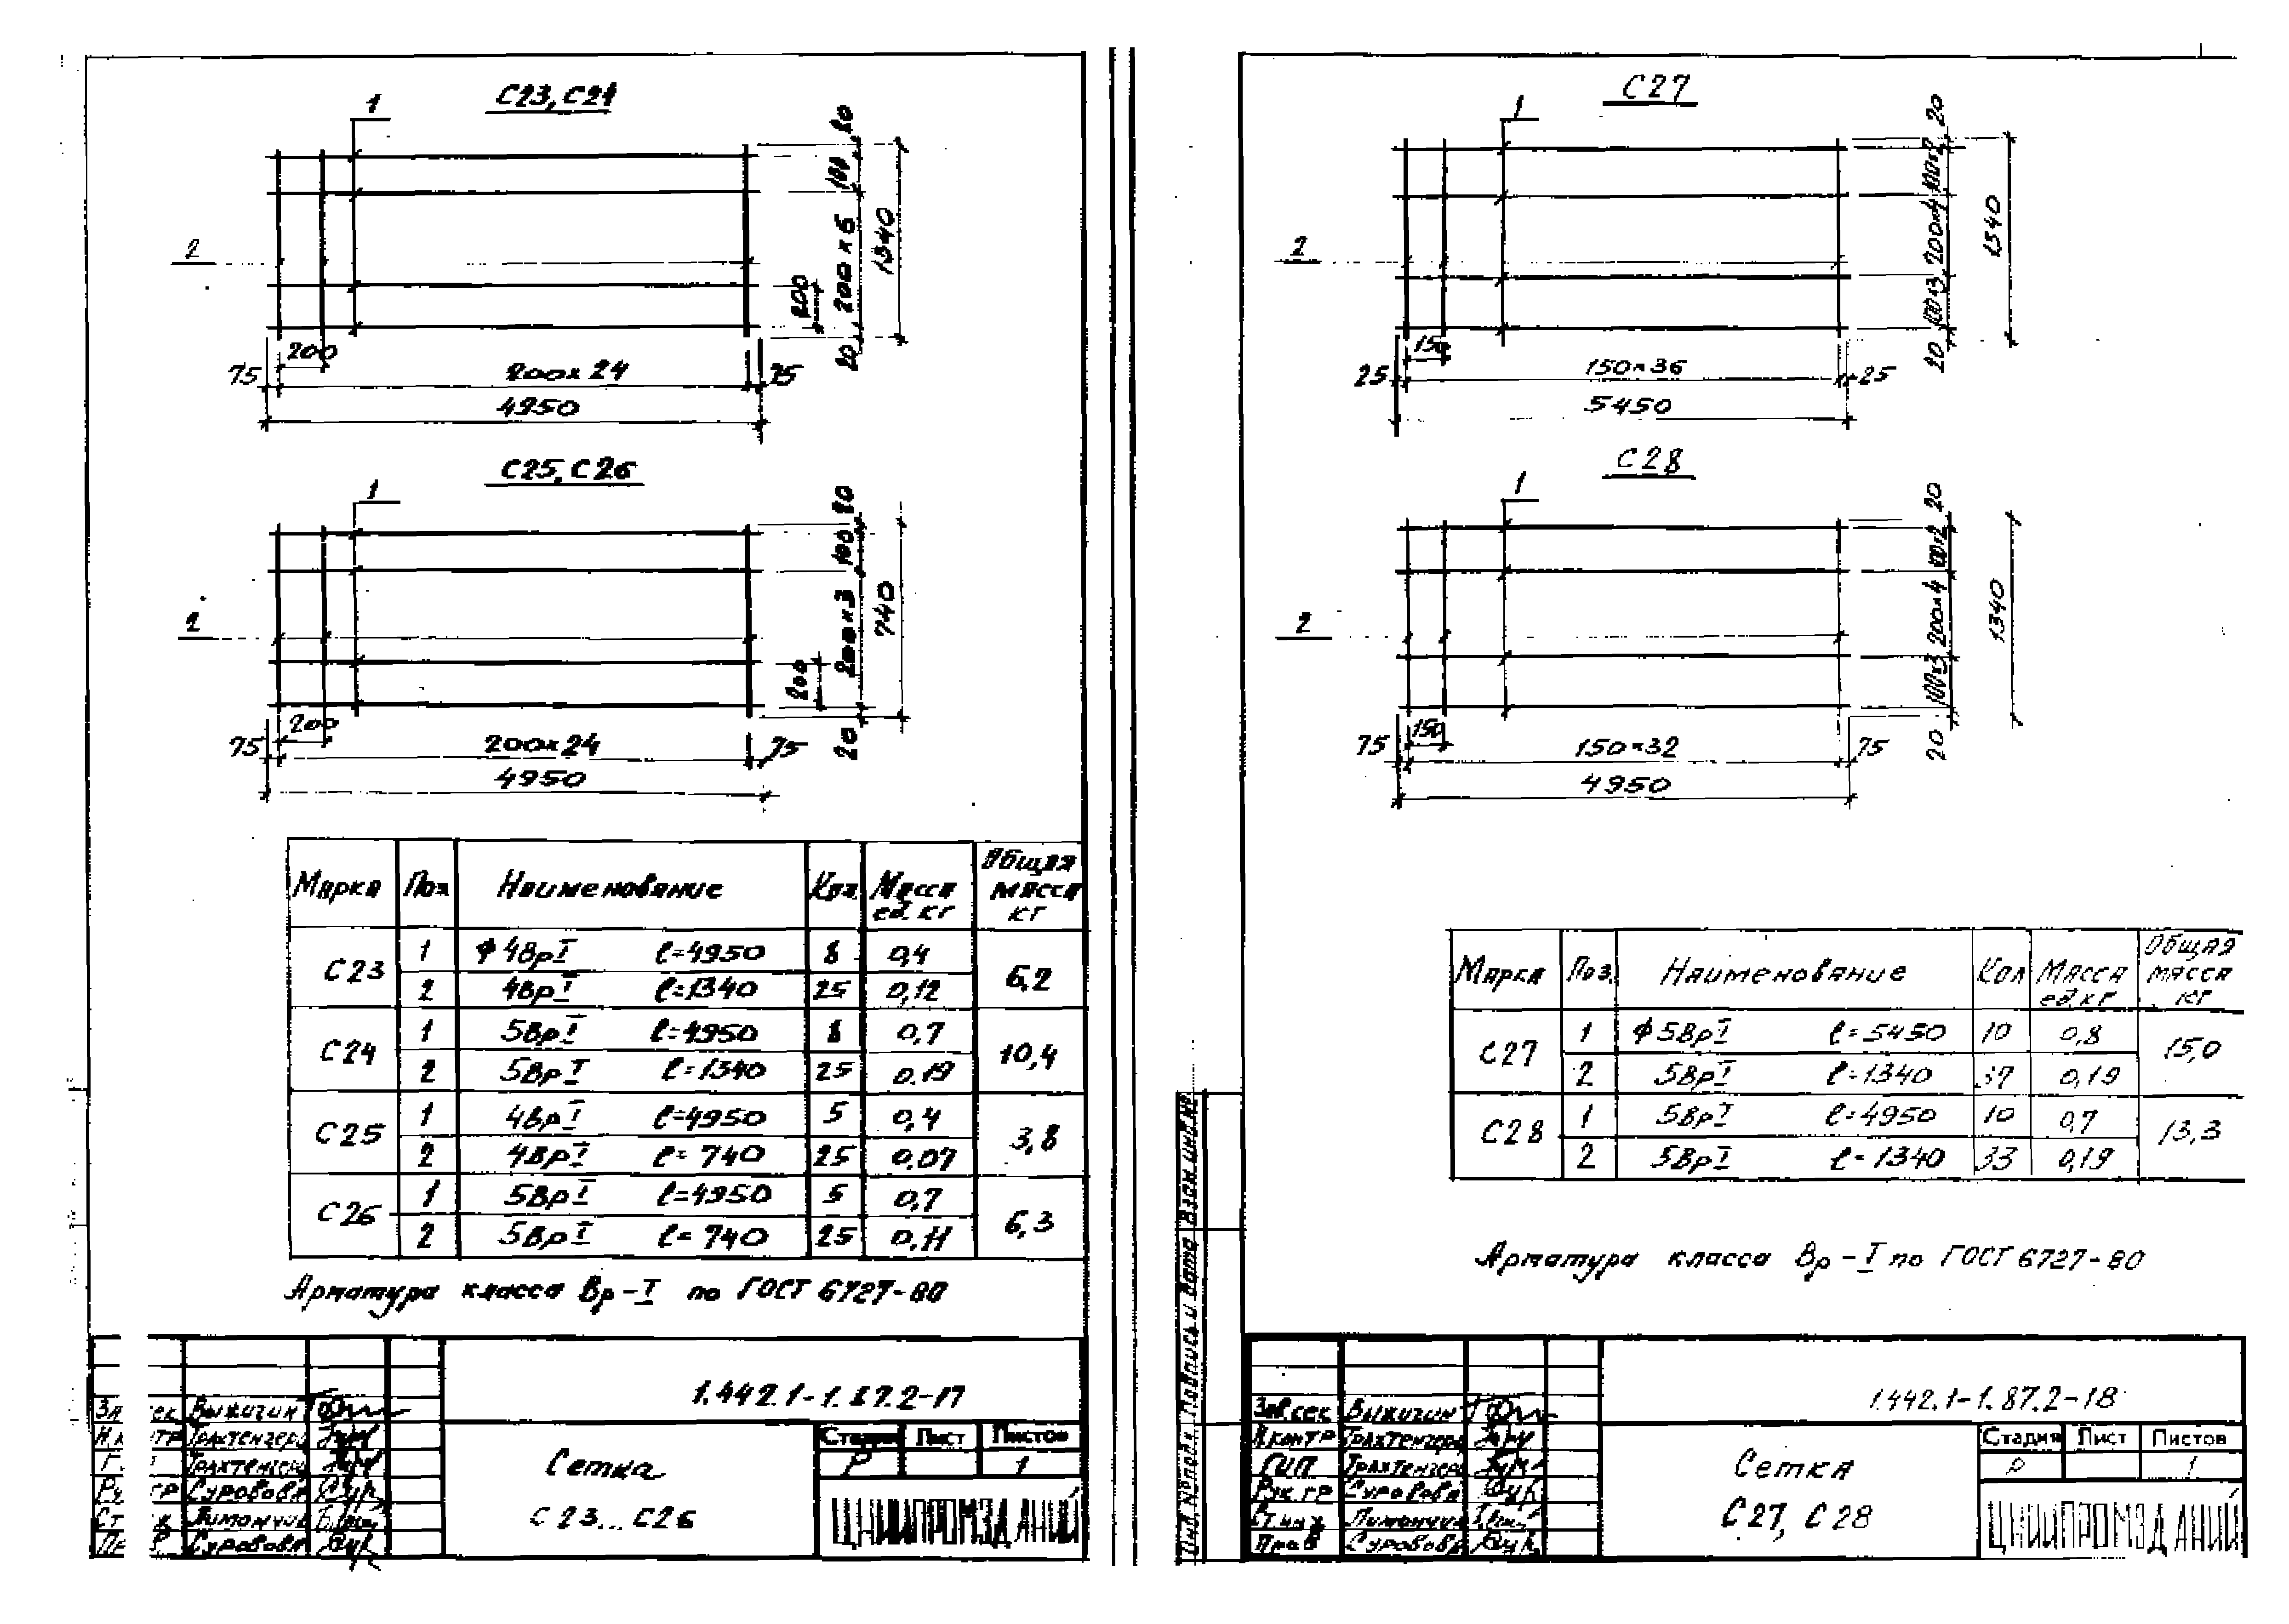 С23, С24
1
2
20
100
200×6
200
20
1340
200
75
200×24
75
4950
С25, С26
1
2
20
100
200×3
200
20
740
200
75
200×24
75
4950
Марка Поз Наименование Кол Масса ед. кг Общая масса кг
С23 1 ϕ4ВрI ℓ=4950 8 0,4 6,2
2 4ВрI ℓ=1340 25 0,12
С24 1 5ВрI ℓ=4950 8 0,7 10,4
2 5ВрI ℓ=1340 25 0.19
С25 1 4ВрI ℓ=4950 5 0,4 3,8
2 4ВрI ℓ=740 25 0,07
С26 1 5ВрI ℓ=4950 5 0,7 6,3
2 5ВрI ℓ=740 25 0.11
Арматура класса Вр-I по ГОСТ 6727-80
1.442.1-1.87.2-17
Выжигин
Трахтенгерц
Трахтенгерц
Суровова
Лимончик
Суровова
Сетка
С23...С26
Стадия Лист Листов
Р 1
ЦНИИПРОМЗДАНИЙ
С27
1
2
20
100×2
200×4
100×3
20
1340
150
25
150×36
25
5450
С28
1
2
20
100×2
200×4
100×3
20
1340
150
75
150×32
75
4950
Марка Поз. Наименование Кол Масса ед. кг Общая масса кг
С27 1 ϕ5ВрI ℓ=5450 10 0,8 15,0
2 5ВрI ℓ=1340 37 0,19
С28 1 5ВрI ℓ=4950 10 0,7 13,3
2 5ВрI ℓ=1340 33 0,19
Арматура класса Вр-I по ГОСТ 6727-80
Инв.№подл. Подпись и дата Взам.инв.№
1.442.1-1.87.2-18
Зав.сек Выжигин
Н.контр Трахтенгерц
ГИП Трахтенгерц
Рук.гр Суровова
Ст.инж Лимончик
Пров Суровова
Сетка
С27, С28
Стадия Лист Листов
Р 1
ЦНИИПРОМЗДАНИЙ